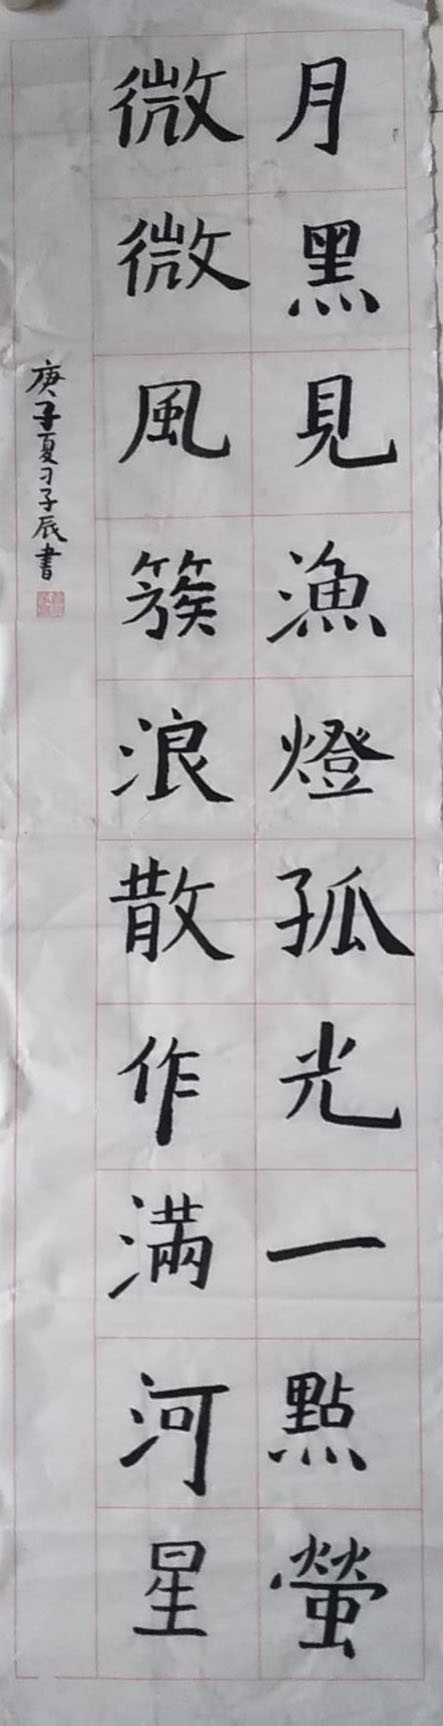 月黑見漁燈孤光一點螢
微微風簇浪散作滿河星
庚子夏习子辰書